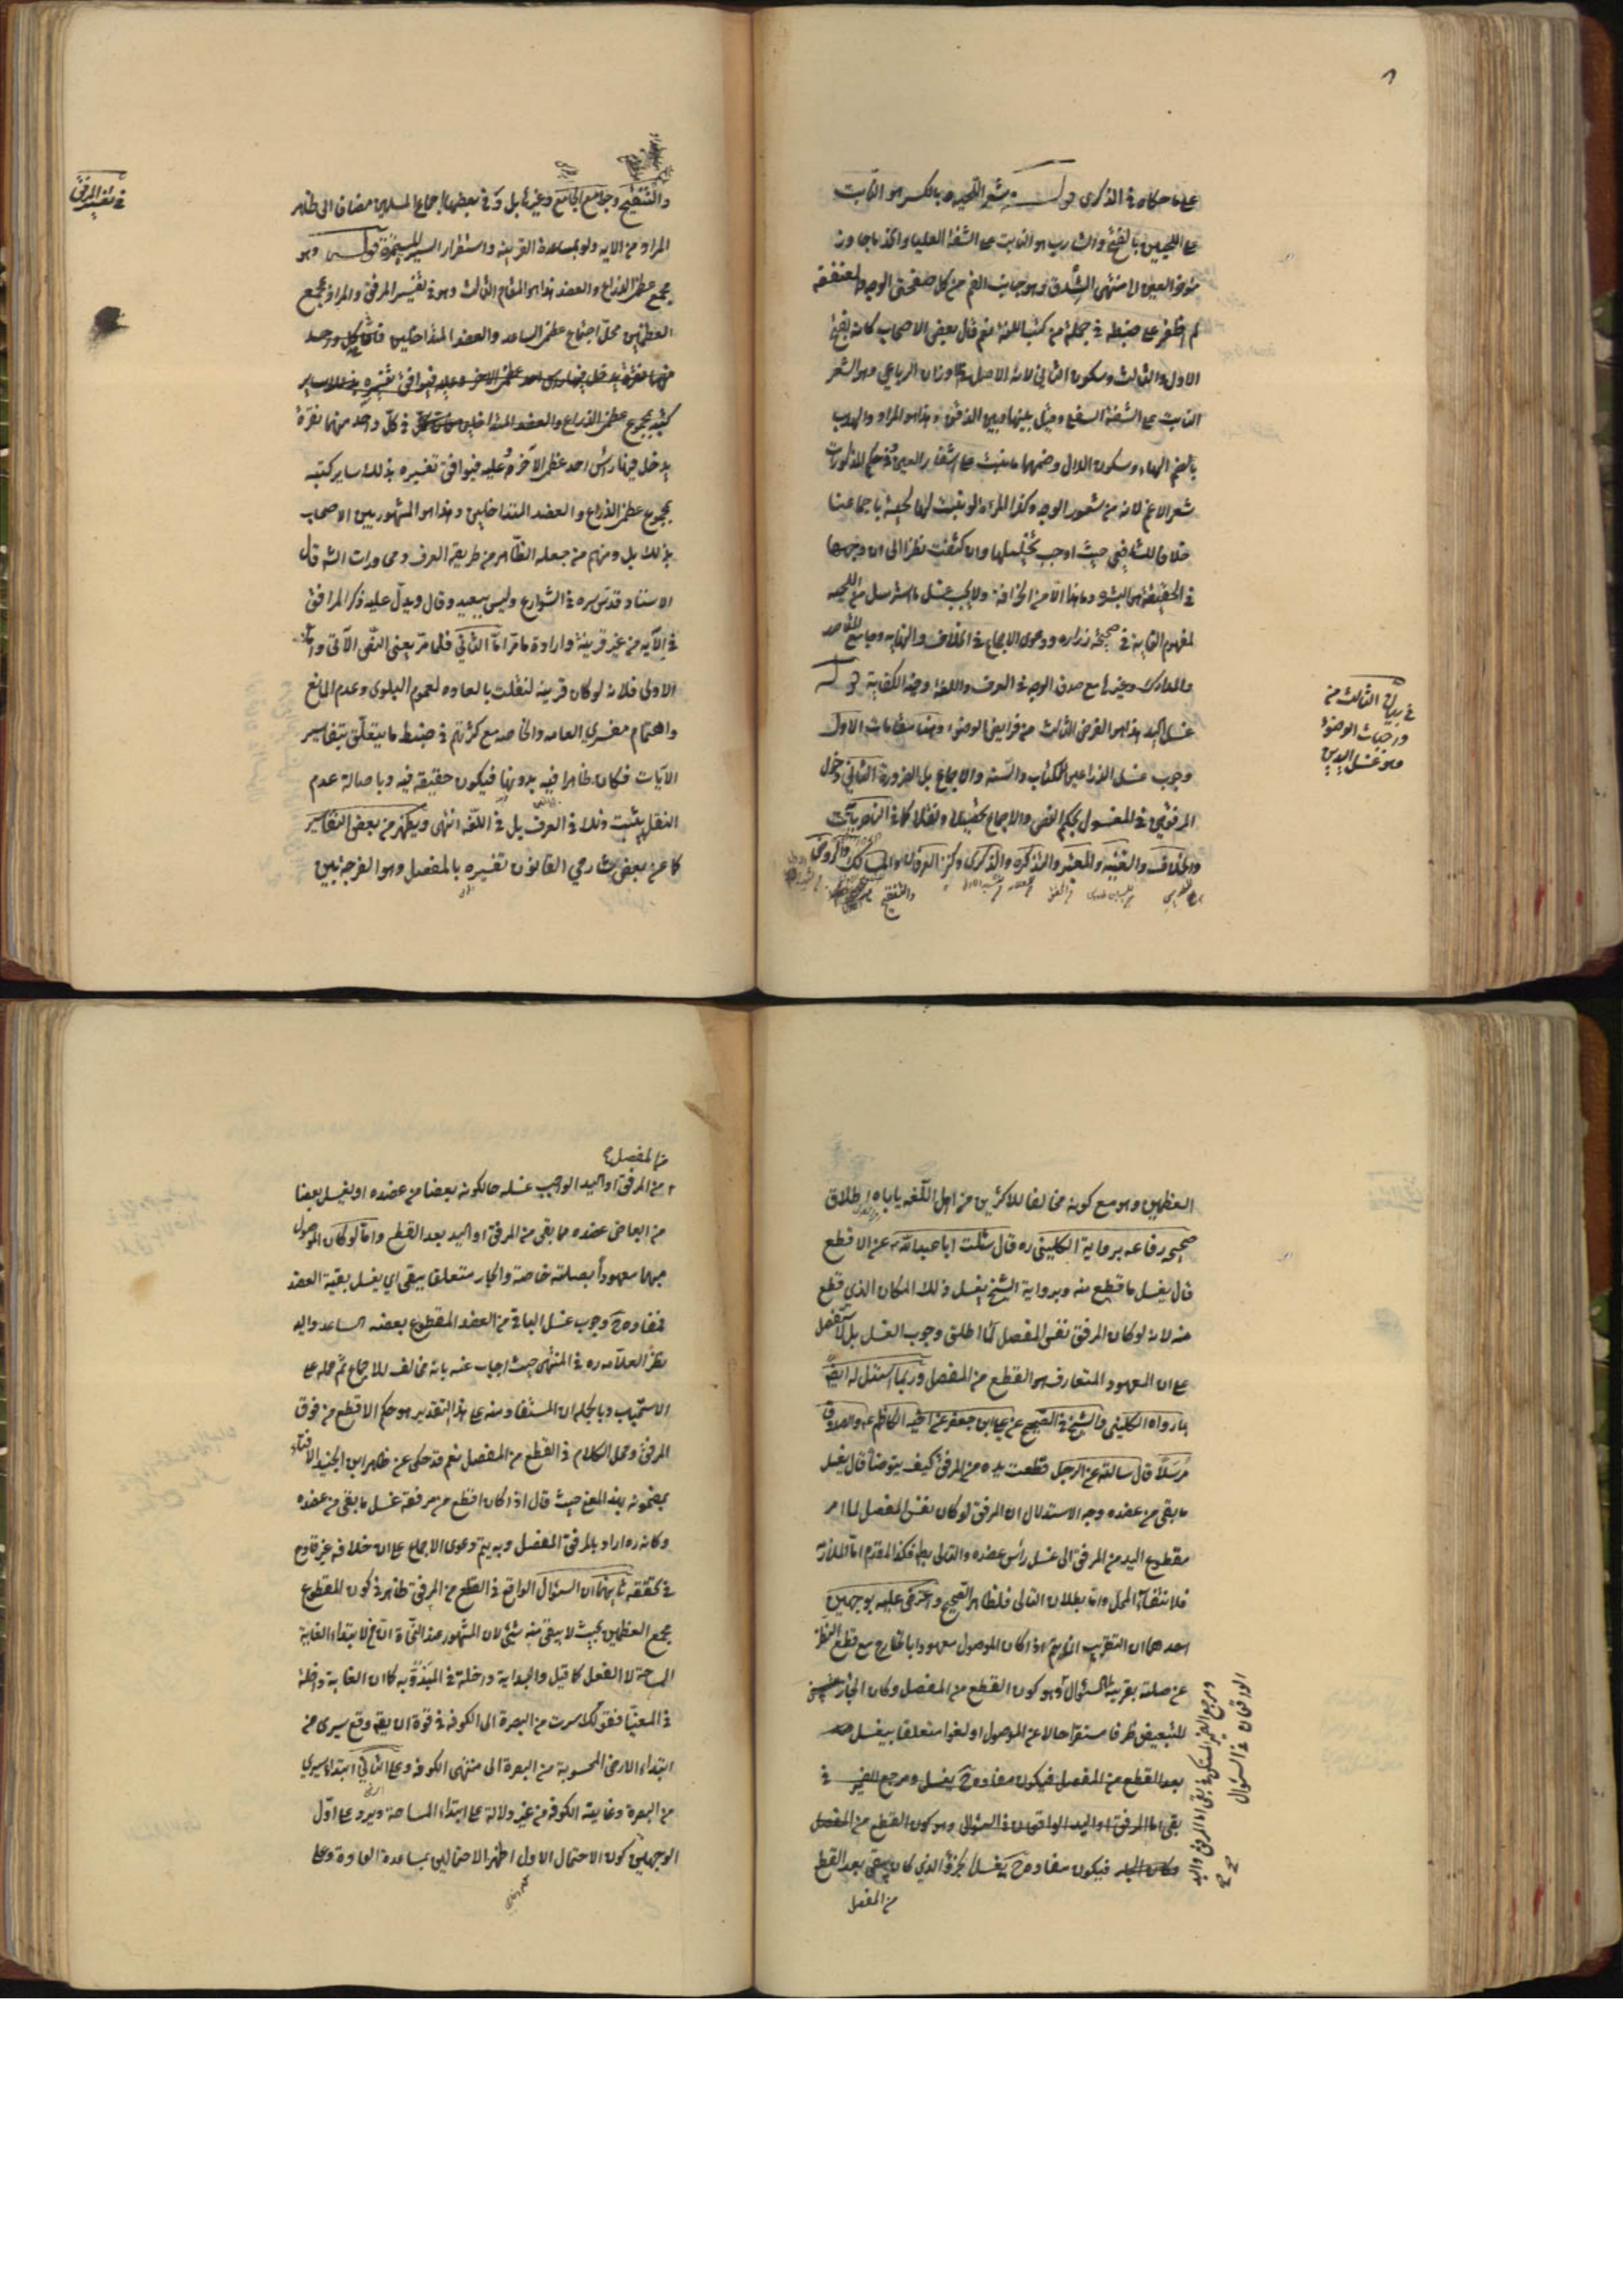 على ما حكاه في الذكرى قوله شعر اللحيه بالكسر هو النابت
على اللحيين بالفتح والشارب هو النابت على الشفة العليا والخد ما جاوز
مؤخر العين الى منتهى الشدق وهو جانب الفم من كل صفحتي الوجه والعنفقة
لم اظفر على ضبطه في جملة من كتب اللغة نعم قال بعض الاصحاب كانه بفتح
الاول والثالث وسكون الثاني لانه الاصل في اوزان الرباعي وهو الشعر
النابت على الشفة السفلى وقيل بينها وبين الذقن وهذا هو المراد والهدب
بالضم الهاء وسكون الدال وضمهما ما نبت على اشفار العين وفي حكم المذكورات
شعر الاغم لانه من شعور الوجه وكذا المراة لو نبتت لها لحية باجماعنا
خلافا للشافعي حيث اوجب تخليلها وان كثفت نظرا الى ان وجهها
في الحقيقة هو البشره وهذا من الخرافة ولا يجب غسل ما استرسل من اللحيه
لمفهوم الغاية في صحيحة زراره ودعوى الاجماع في الخلاف والنهايه وجامع المقاصد
والمدارك وغيرها مع صدق الوجه في العرف واللغة وجه الكفاية قوله
غسل اليد هذا هو الفرض الثالث من فرايض الوضوء وهنا مقامات الاول
وجوب غسل الذراعين للكتاب والسنة والاجماع بل الضرورة الثاني دخول
المرفقين في المغسول بحكم النص والاجماع تحصيلا ونقلا كما في الناصريات
والخلاف والغنيه والمعتبر والتذكره والذكرى وكنز العرفان والمسالك والروض
والتنقيح
في بيان الثالث من
واجبات الوضوء
وهو غسل اليدين
والتنقيح وجامع الجامع وغيرها بل وفي بعضها اجماع المسلمين مضافا الى ظاهر
المراد من الايه ولو بمساعدة القرينه واستقرار السيرة المستمرة قوله وهو
مجمع عظمى الذراع والعضد هذا هو المقام الثالث وهو في تفسير المرفق والمراد بمجمع
العظمين محل اجتماع عظمى الساعد والعضد المتداخلين فان في كل واحد
كتبه بمجموع عظمى الذراع والعضد المتداخلين في كل واحد منهما نقرة
يدخل فيها راس احد عظم الآخر وعليه فيوافق تفسيره بذلك ساير كتبه
بمجموع عظمى الذراع والعضد المتداخلين وهذا هو المشهور بين الاصحاب
بذلك بل ومنهم من جعله الظاهر من طريقة العرف ومحاورات الناس قال
الاستاد قدس سره في الشوارع وليس ببعيد وقال ويدل عليه ذكر المرافق
في الآيه من غير قرينة وارادة ما مر اما الثاني فلما مر يعنى النص الآتي واما
الاولى فلانه لو كان قرينه لنقلت بالعاده لعموم البلوى وعدم المانع
واهتمام مفسري العامه والخاصه مع كثرتهم في ضبط ما يتعلق بتفاسير
الآيات فكان ظاهرا فيه بدونها فيكون حقيقة فيه وباصالة عدم
النقل يثبت ذلك في العرف بل في اللغه انتهى ويظهر من بعض التفاسير
كما عن بعض شارحي القانون تفسيره بالمفصل وهو الفرجة بين
في تفسير المرفق
العظمين وهو مع كونه مخالفا للاكثرين من اهل اللغه ياباه اطلاق
صحيحه رفاعه برواية الكليني ره قال سئلت ابا عبدالله عن الاقطع
قال يغسل ما قطع منه وبرواية الشيخ يغسل ذلك المكان الذي قطع
منه لانه لو كان المرفق نفس المفصل لما اطلق وجوب الغسل بل لاستفصل
على ان المعهود المتعارف هو القطع من المفصل وربما استدل له ايضا
بما رواه الكليني والشيخ في الصحيح عن علي بن جعفر عن اخيه الكاظم والصدوق
مرسلا قال سالته عن الرجل قطعت يده من المرفق كيف يتوضأ قال يغسل
ما بقى من عضده وجه الاستدلال ان المرفق لو كان نفس المفصل لما امر
مقطوع اليد من المرفق الى غسل راس عضده والتالى بط فكذا المقدم اما الملازمة
فلانتفاء المحل واما بطلان التالى فلظاهر الصحيح واعترض عليه بوجهين
احدهما ان التقريب انما يتم اذا كان الموصول معهودا بالخارج مع قطع النظر
عن صلته بقرينة السؤال وهو كون القطع من المفصل وكان الجار
للتبعيض ظرفا مستقرا حالا عن الموصول او لغوا متعلقا بيغسل
بعد القطع من المفصل فيكون مفاده ح يغسل ومرجع الضمير في
بقى اما المرفق او اليد الواقعان في السؤال وهو كون القطع من المفصل
فيكون مفاده ح يغسل الجزؤ الذي كان يبقى بعد القطع
من المفصل
ومرجع الضمير المستكن في بقى اما المرفق او اليد
الواقعان في السؤال
من المفصل
من المرفق او اليد الواجب غسله حال كونه بعضا من عضده او يغسل بعضا
من ابعاض عضده مما بقى من المرفق او اليد بعد القطع واما لو كان الموصول
مبهما معهودا بصلته خاصة والجار متعلقا بيبقى اي يغسل بقية العضد
فمفاده ح وجوب غسل الباقي من العضد المقطوع بعضه الساعد واليد
نظر العلامه ره في المنتهى حيث اجاب عنه بانه مخالف للاجماع ثم حمله على
الاستحباب وبالجمله ان المستفاد منه على هذا التقدير هو حكم الاقطع من فوق
المرفق ومحل الكلام في القطع من المفصل نعم قد حكى عن ظاهر ابن الجنيد الافتاء
بمضمونه بهذا المعنى حيث قال اذا كان اقطع من مرفقه غسل ما بقى من عضده
وكانه ره اراد بالمرفق المفصل وبه يتم دعوى الاجماع على ان خلافه غير قادح
في تحققه ثانيهما ان السؤال الواقع في القطع من المرفق ظاهر في كون المقطوع
مجمع العظمين بحيث لا يبقى منه شئ لان المشهور عند النحاة ان من لابتداء الغاية
المساحة لا الفعل كما قيل والبداية داخلة في المبدؤ به كما ان الغاية داخلة
في المغيا فقولك سرت من البصرة الى الكوفه في قوة ان يقع وقع سيرى من
ابتداء الارض المحسوبة من البصرة الى منتهى الكوفه وعلى الثاني ابتداء سيري
من البصرة وغايته الكوفه من غير دلالة على ابتداء المساحة ويرد على اول
الوجهين كون الاحتمال الاول اظهر الاحتمالين بمساعدة العادة وعلى